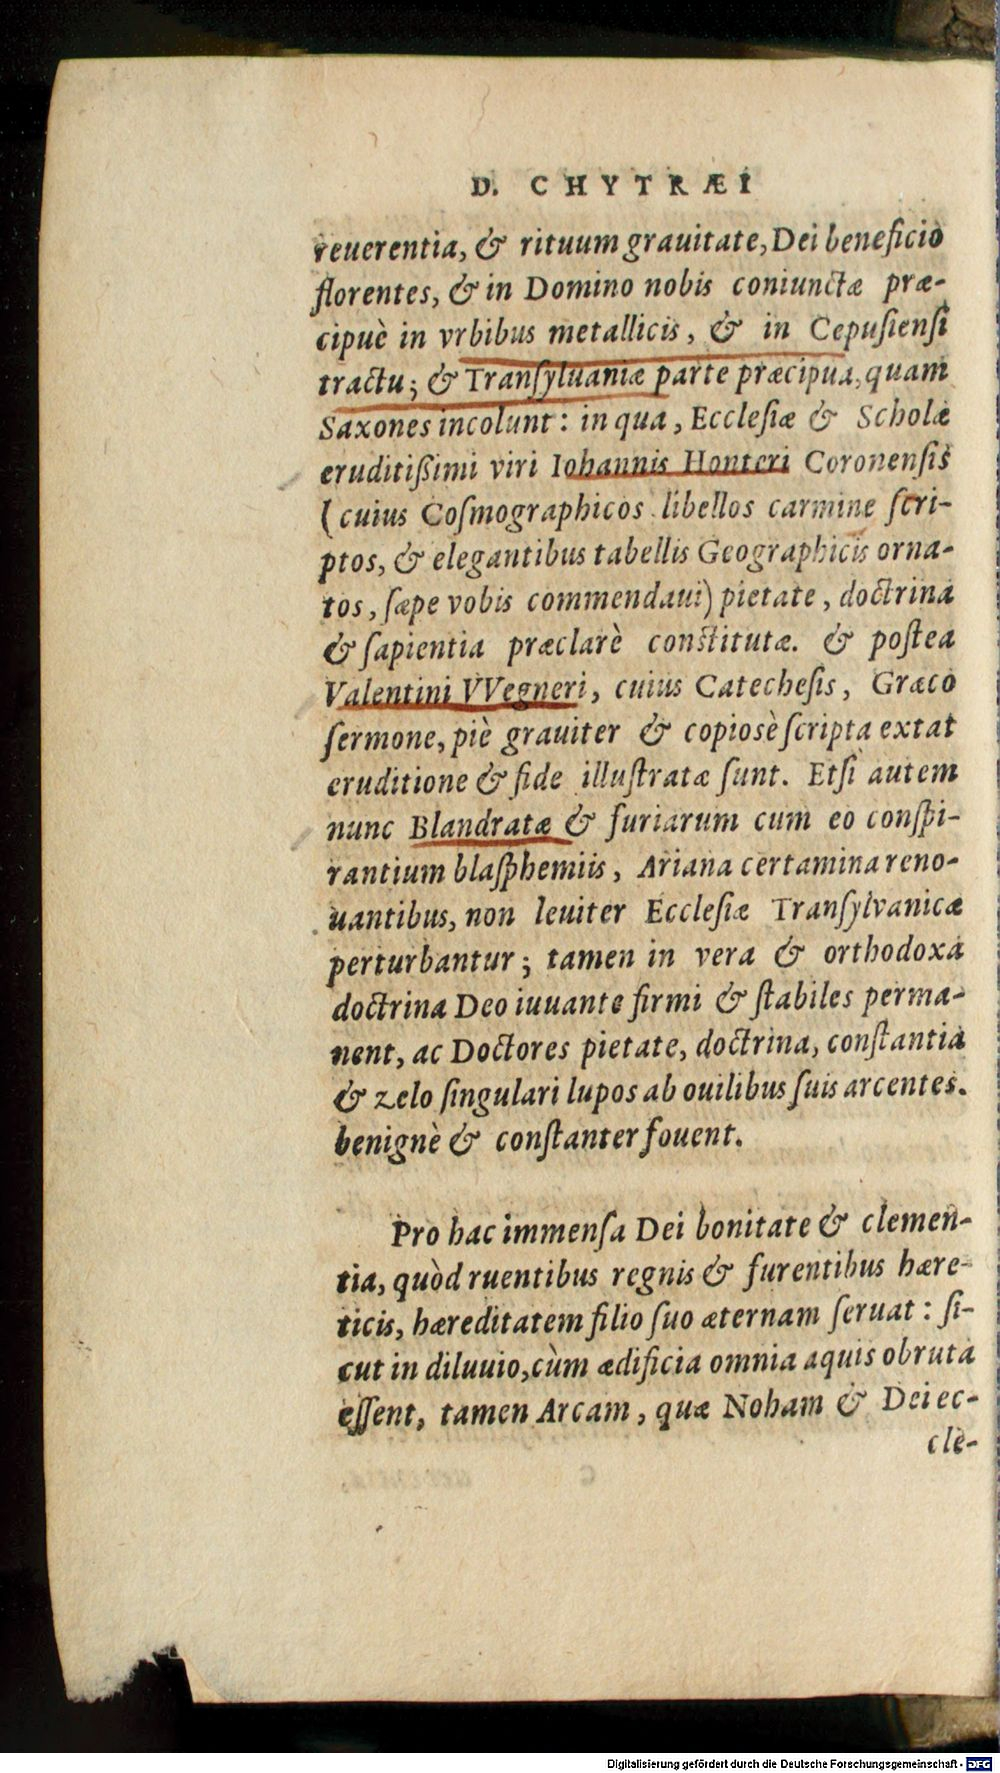 D. CHYTRÆI
reuerentia, & rituum grauitate, Dei beneficio
florentes, & in Domino nobis coniunctæ præ-
cipuè in vrbibus metallicis, & in Cepusiensi
tractu; & Transyluaniæ parte præcipua, quam
Saxones incolunt: in qua, Ecclesiæ & Scholæ
eruditißimi viri Iohannis Honteri Coronensis
(cuius Cosmographicos libellos carmine scri-
ptos, & elegantibus tabellis Geographicis orna-
tos, sæpe vobis commendaui) pietate, doctrina
& sapientia præclarè constitutæ. & postea
Valentini VVegneri, cuius Catechesis, Græco
sermone, piè grauiter & copiosè scripta extat
eruditione & fide illustratæ sunt. Etsi autem
nunc Blandratæ & furiarum cum eo conspi-
rantium blasphemiis, Ariana certamina reno-
uantibus, non leuiter Ecclesiæ Transylvanicæ
perturbantur; tamen in vera & orthodoxa
doctrina Deo iuuante firmi & stabiles perma-
nent, ac Doctores pietate, doctrina, constantia
& zelo singulari lupos ab ouilibus suis arcentes.
benignè & constanter fouent.
Pro hac immensa Dei bonitate & clemen-
tia, quòd ruentibus regnis & furentibus hære-
ticis, hæreditatem filio suo æternam seruat: si-
cut in diluuio, cùm ædificia omnia aquis obruta
essent, tamen Arcam, quæ Noham & Dei ec-
cle-
Digitalisierung gefördert durch die Deutsche Forschungsgemeinschaft - DFG